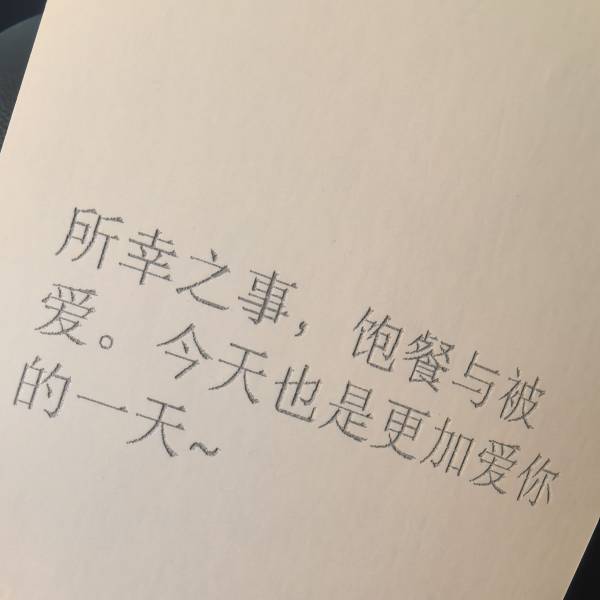 所幸之事，饱餐与被
爱。今天也是更加爱你
的一天~